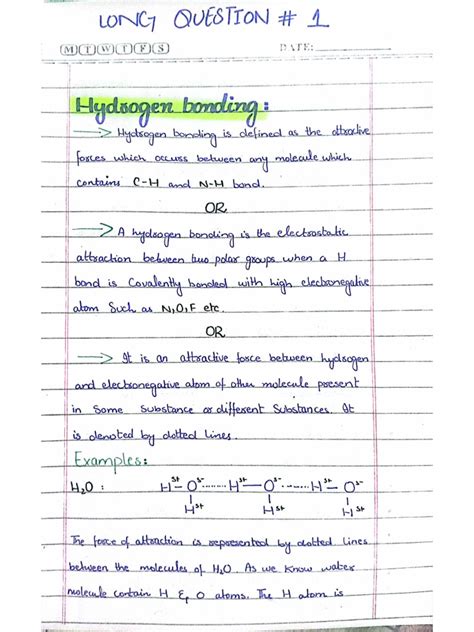 LONG QUESTION # 1
M T W T F S DATE:
Hydrogen bonding:
→ Hydrogen bonding is defined as the attractive
forces which occurs between any molecule which
contains C-H and N-H bond.
OR
→ A hydrogen bonding is the electrostatic
attraction between two polar groups when a H
bond is Covalently bonded with high electronegative
atom Such as N,O,F etc.
OR
→ It is an attractive force between hydrogen
and electronegative atom of other molecule present
in Some Substance or different Substances. It
is denoted by dotted lines.
Examples:
H₂O : H—O^δ- ...... H^δ+—O^δ- ...... H^δ+—O^δ-
H^δ+ H^δ+ H^δ+
The force of attraction is represented by dotted lines
between the molecules of H₂O. As we know water
molecule contain H & O atoms. The H atom is